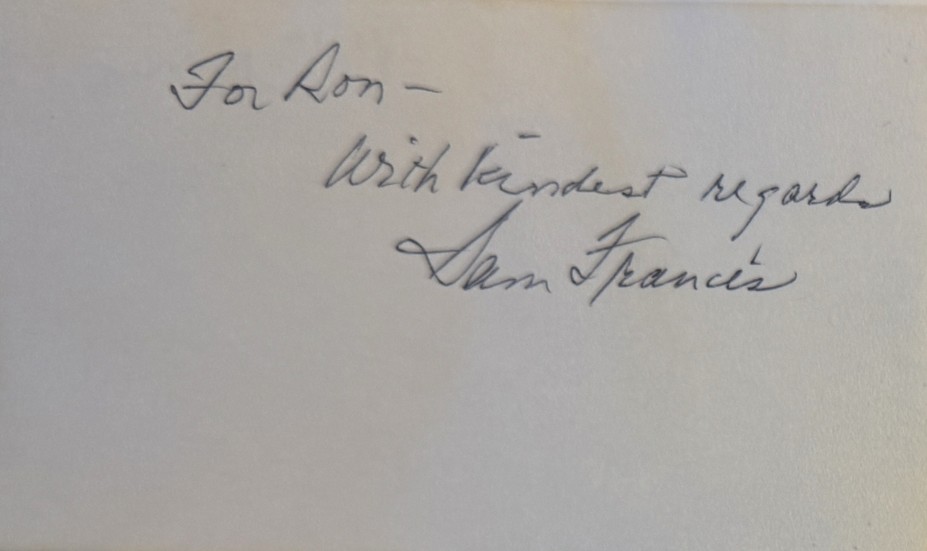 For Ron -
With kindest regards
Sam Francis